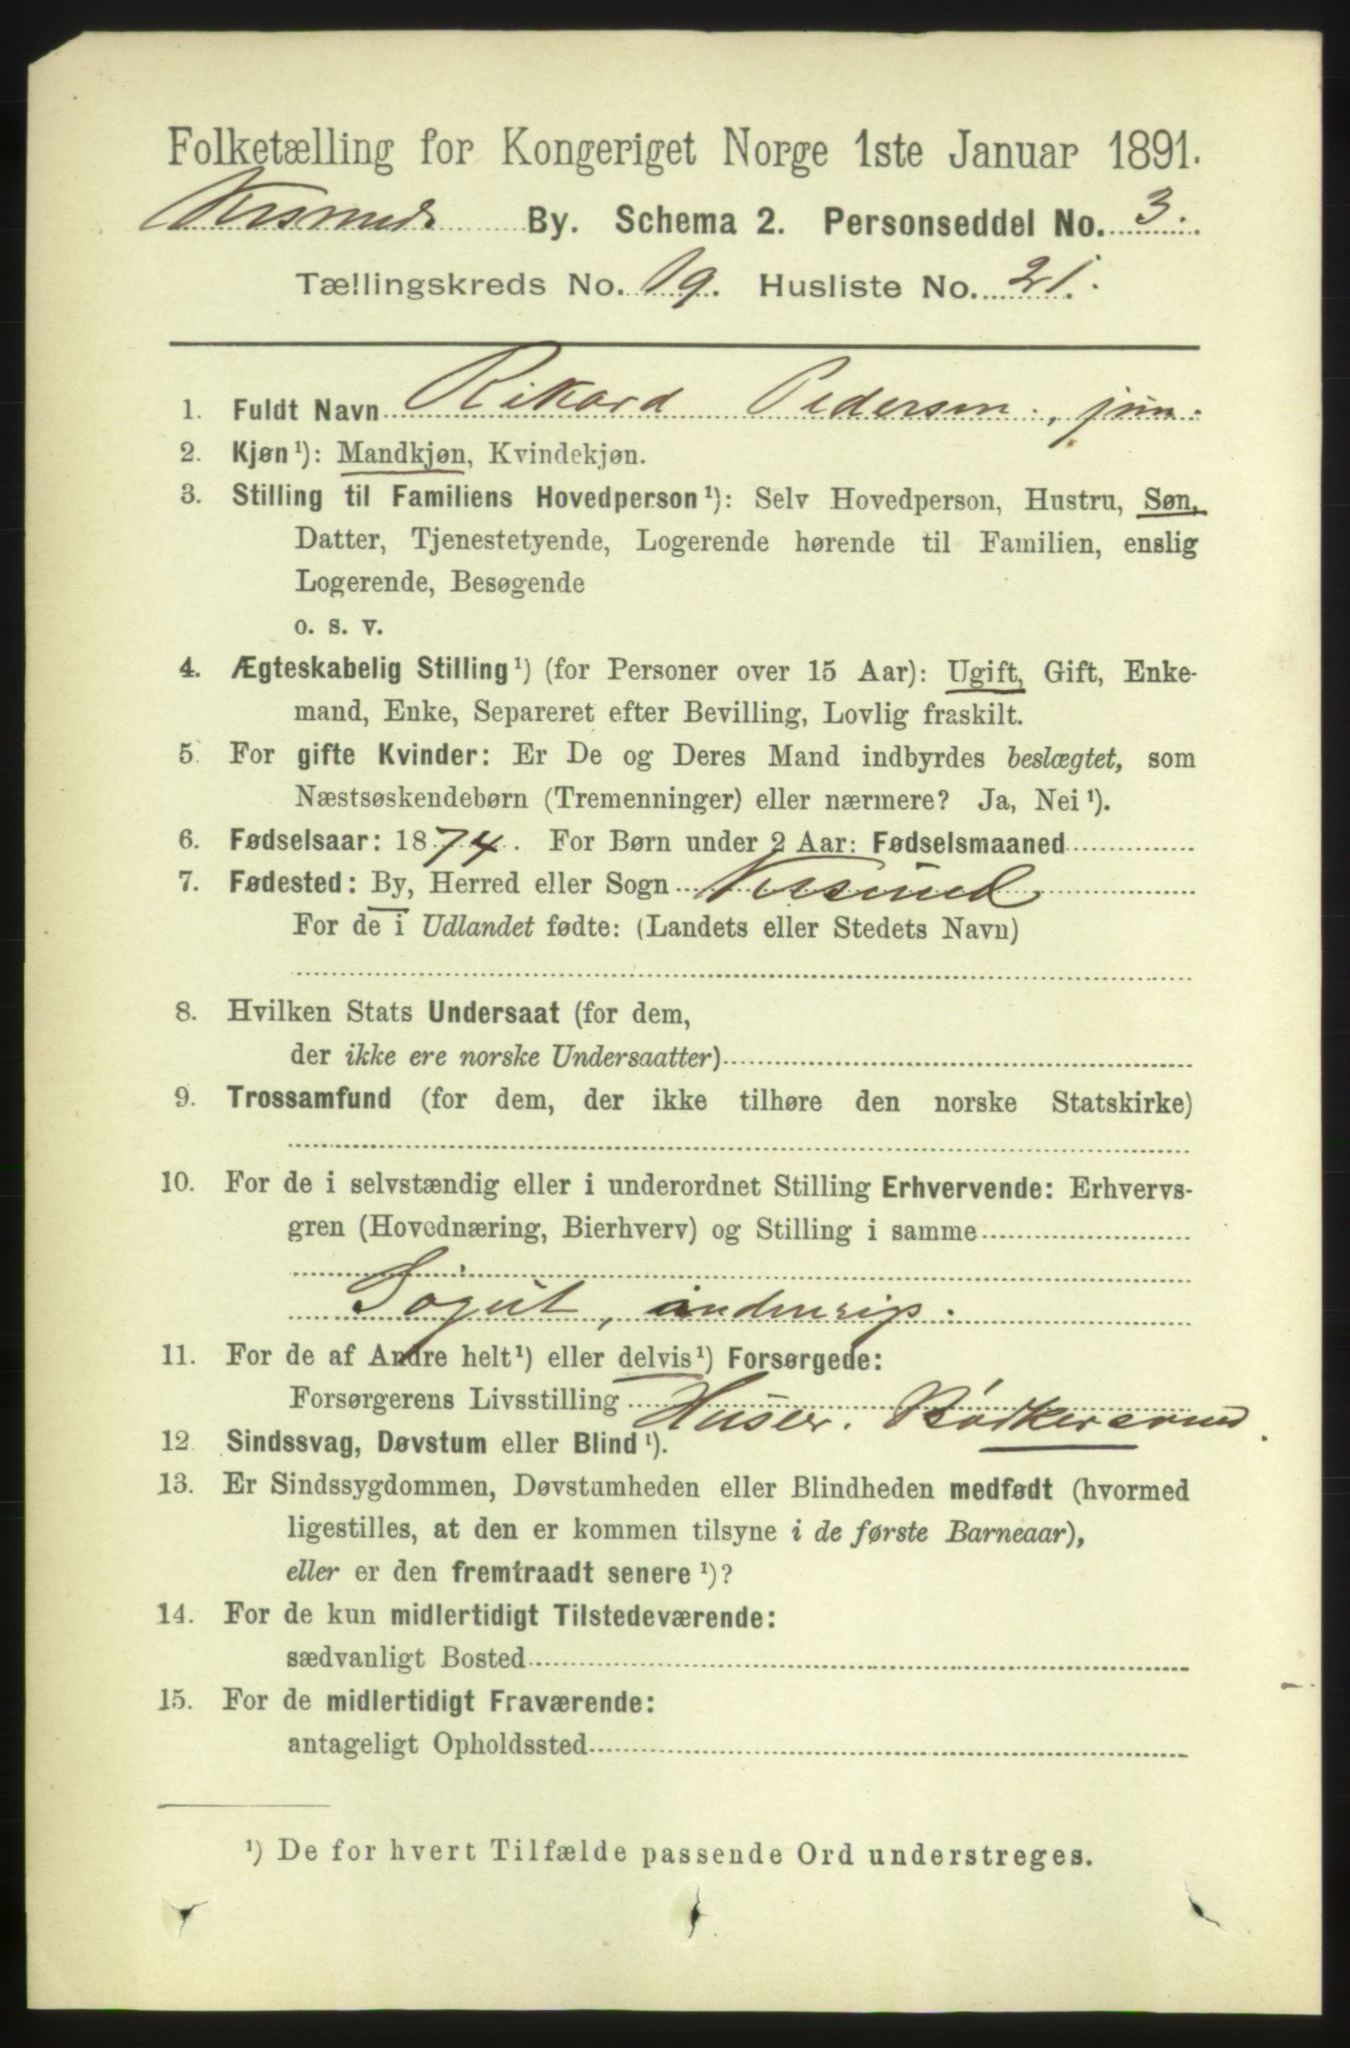 Folketælling for Kongeriget Norge 1ste Januar 1891.
Krsunds By. Schema 2. Personseddel No. 3.
Tællingskreds No. 19. Husliste No. 21.
1. Fuldt Navn Rikard Pedersen, jun.
2. Kjøn¹): Mandkjøn, Kvindekjøn.
3. Stilling til Familiens Hovedperson¹): Selv Hovedperson, Hustru, Søn,
Datter, Tjenestetyende, Logerende hørende til Familien, enslig
Logerende, Besøgende
o. s. v.
4. Ægteskabelig Stilling¹) (for Personer over 15 Aar): Ugift, Gift, Enke-
mand, Enke, Separeret efter Bevilling, Lovlig fraskilt.
5. For gifte Kvinder: Er De og Deres Mand indbyrdes beslægtet, som
Næstsøskendebørn (Tremenninger) eller nærmere? Ja, Nei¹).
6. Fødselsaar: 1874. For Børn under 2 Aar: Fødselsmaaned
7. Fødested: By, Herred eller Sogn Krsund
For de i Udlandet fødte: (Landets eller Stedets Navn)
8. Hvilken Stats Undersaat (for dem,
der ikke ere norske Undersaatter)
9. Trossamfund (for dem, der ikke tilhøre den norske Statskirke)
10. For de i selvstændig eller i underordnet Stilling Erhvervende: Erhvervs-
gren (Hovednæring, Bierhverv) og Stilling i samme
Jogut,
11. For de af Andre helt¹) eller delvis¹) Forsørgede:
Forsørgerens Livsstilling Huseier. Bødkersvend.
12 Sindssvag, Døvstum eller Blind¹).
13. Er Sindssygdommen, Døvstumheden eller Blindheden medfødt (hvormed
ligestilles, at den er kommen tilsyne i de første Barneaar),
eller er den fremtraadt senere¹)?
14. For de kun midlertidigt Tilstedeværende:
sædvanligt Bosted
15. For de midlertidigt Fraværende:
antageligt Opholdssted
¹) De for hvert Tilfælde passende Ord understreges.